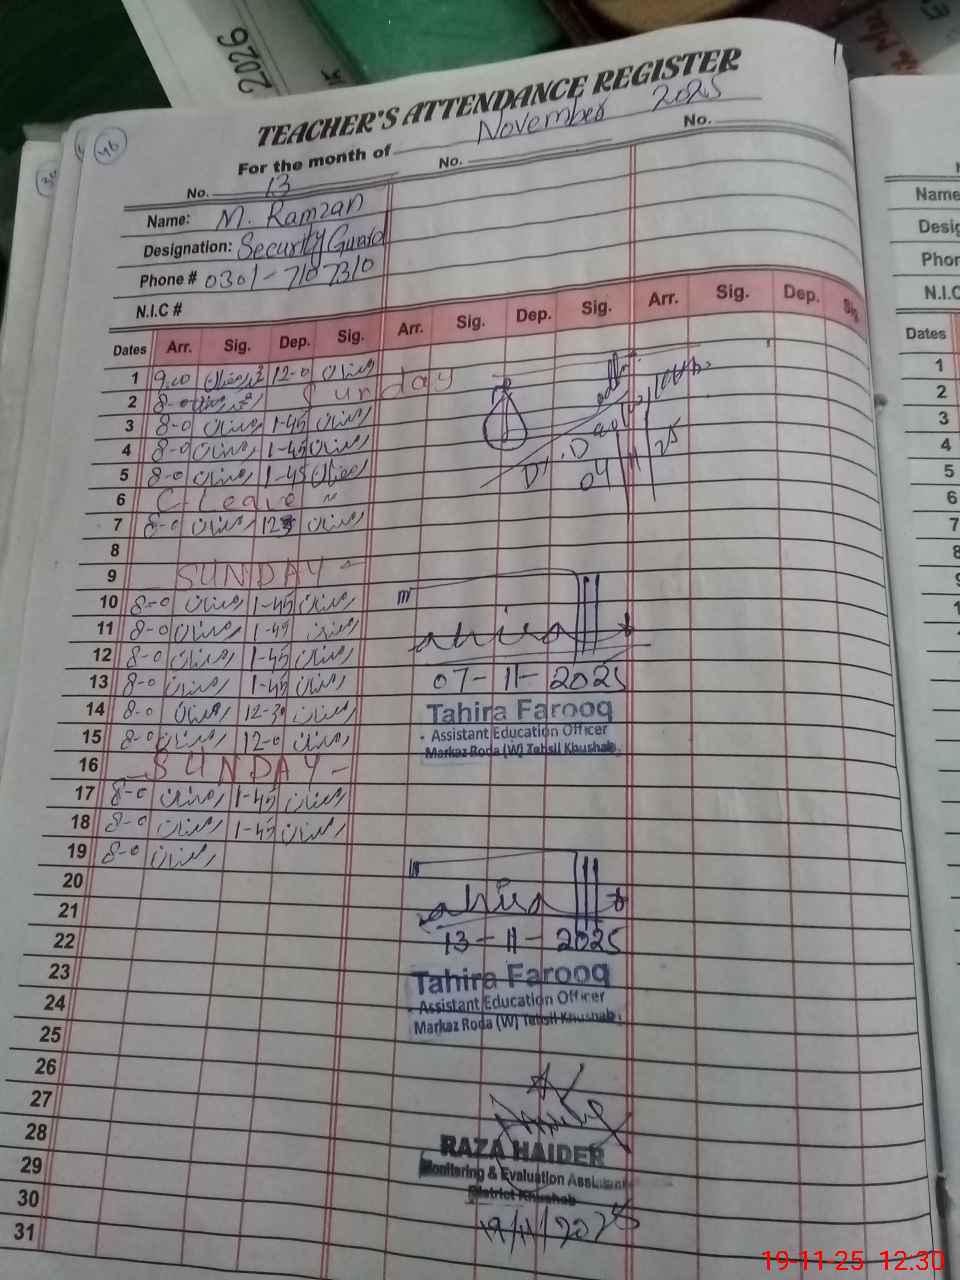 2026
TEACHER'S ATTENDANCE REGISTER
For the month of November 2025
46
No. 13 No. No.
Name: M. Ramzan
Designation: Security Guard
Phone # 0301-7107310
N.I.C #
Dates Arr. Sig. Dep. Sig. Arr. Sig. Dep. Sig. Arr. Sig. Dep. Sig.
1 9.00 محمد رمضان 12-0 رمضان
2 8-0 محمد رمضان Sunday
3 8-0 رمضان 1-45 رمضان
4 8-0 رمضان 1-45 رمضان
5 8-0 رمضان 1-45 رمضان
6 C-Leave
7 8-0 رمضان رمضان
8
9 SUNDAY
10 8-0 رمضان 1-45 رمضان
11 8-0 رمضان 1-45 رمضان
12 8-0 رمضان 1-45 رمضان
13 8-0 رمضان 1-45 رمضان
14 8-0 رمضان 12-30 رمضان
15 8-0 رمضان 12-0 رمضان
16 SUNDAY
17 8-0 رمضان 1-45 رمضان
18 8-0 رمضان 1-45 رمضان
19 8-0 رمضان
20
21
22
23
24
25
26
27
28
29
30
31
04/11/25
07-11-2025
Tahira Farooq
Assistant Education Officer
Markaz Roda (W) Tehsil Khushab
13-11-2025
Tahira Farooq
Assistant Education Officer
Markaz Roda (W) Tehsil Khushab
RAZA HAIDER
Monitoring & Evaluation Assistant
District Khushab
19/11/2025
Name
Desig
Phon
N.I.C
Dates
1
2
3
4
5
6
7
8
9
19-11-25 12:30